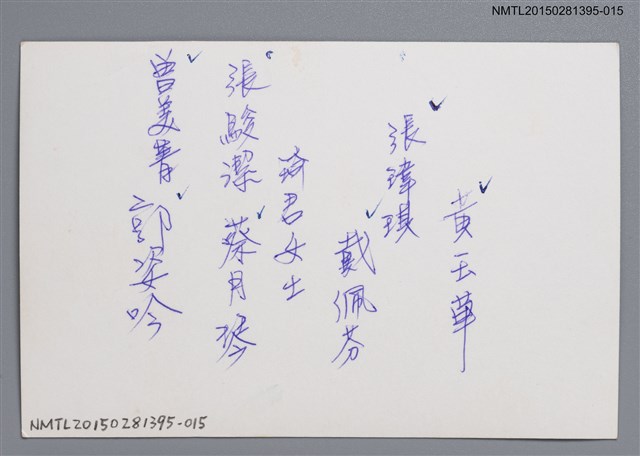 NMTL20150281395-015
黃玉華
張瑋琪
戴佩芬
琦君女士
張駿潔
蔡月琴
曾美菁
郭姿吟
NMTL20150281395-015